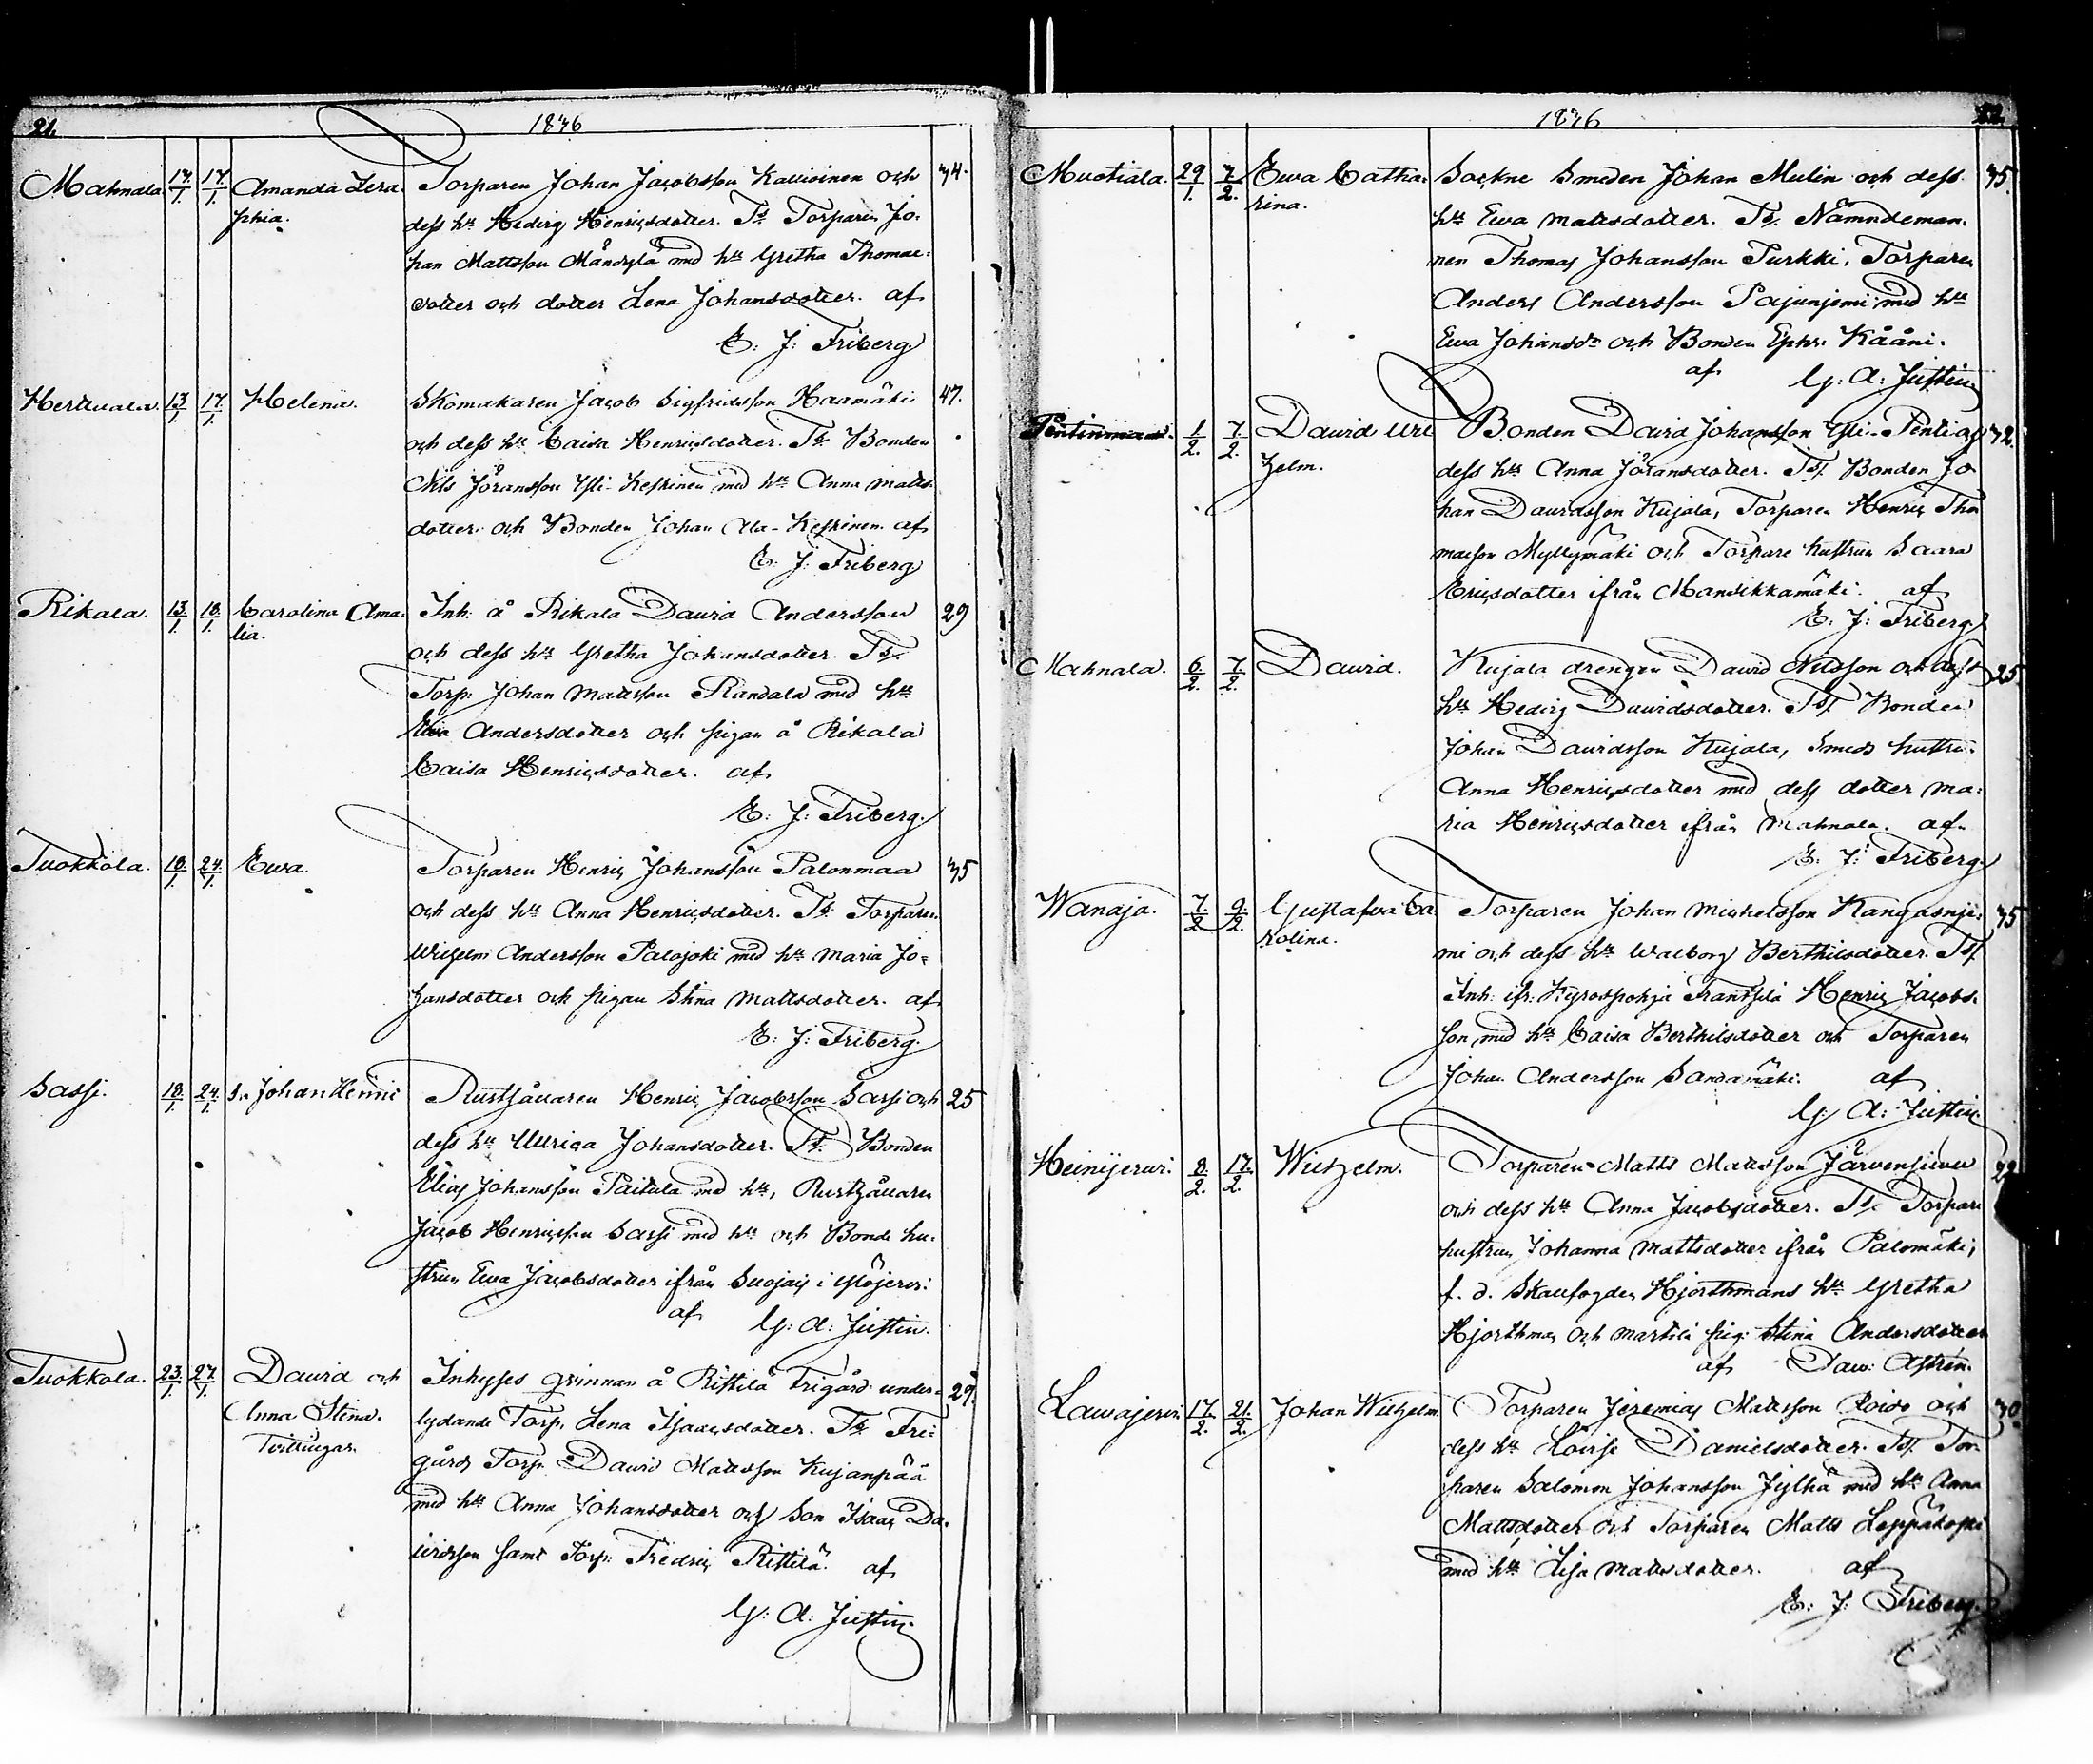 21.
1836
Mahnala. 13/1. 17/1. Amanda Sera Torparen Johan Jacobsson Kallioinen och 34.
phia. dess hu Hedvig Henricsdotter. Ts. Torparen Jo-
han Mattsson Måndylä med hu Gretha Thomæ-
dotter och dotter Lena Johansdotter. af
E: J: Friberg
Herttuala. 13/1. 17/1. Helena. Skomakaren Jacob Sigfridsson Haamäki 47.
och dess hu Caisa Henricsdotter. Ts. Bonden
Nils Jöransson Yli-Keskinen med hu Anna Matts-
dotter och Bonden Johan Ala-Keskinen. af
E: J: Friberg
Rikala. 13/1. 18/1. Carolina Ama- Inh. å Rikala David Andersson 29
lia. och dess hu Gretha Johansdotter. Ts.
Torp: Johan Mattsson Randala med hu
Ewa Andersdotter och pigan å Rikala
Caisa Henricsdotter. af
E: J: Friberg.
Tuokkola. 18/1. 24/1. Ewa. Torparen Henric Johansson Palonmaa 35
och dess hu Anna Henricsdotter. Ts. Torparen
Wilhelm Andersson Palojoki med hu Maria Jo-
hansdotter och pigan Stina Mattsdotter. af
E: J: Friberg.
Sassi. 18/1. 24/1. Johan Henric Rusthållaren Henric Jacobsson Sassi och 25
dess hu Ulrica Johansdotter. Ts. Bonden
Elias Johansson Paitula med hu, Rusthållaren
Jacob Henricsson Sassi med hu och Bonde hu-
strun Ewa Jacobsdotter ifrån Suojais i Ylöjerwi:
af G: A: Justin.
Tuokkola. 23/1. 27/1. David och Inhyses qvinnan å Rittilä frigård under- 29.
Anna Stina. lydande Torp. Lena Isaacsdotter. Ts. Fri-
Tvillingar. gårds Torp. David Mattsson Kujanpää
med hu Anna Johansdotter och Son Isaac Da-
vidsson samt Torp: Fredric Rittilä. af
G: A: Justin.
1836
Muotiala. 29/1. 7/2. Ewa Catha- Sockne Smeden Johan Mulin och dess 35.
rina. hu Ewa Mattsdotter. Ts. Nämndeman-
nen Thomas Johansson Purkki, Torparen
Anders Andersson Pajunjemi med hu
Ewa Johansdr och Bonden Ephr. Kååni.
af G: A: Justin
1/2. 7/2. David Wil Bonden David Johansson Yli-Penti og 32.
helm. dess hu Anna Jöransdotter. Ts. Bonden Jo
han Davidsson Kujala, Torparen Henric Tho
mæson Myllymäki och Torpare hustrun Saara
Ericsdotter ifrån Mansikkamäki. af
E: J: Friberg
Mahnala. 6/2. 7/2. David. Kujala drengen David Nilsson och dess 25.
hu Hedvig Davidsdotter. Ts. Bonden
Johan Davidsson Kujala, Smeds hustru
Anna Henricsdotter med dess dotter Ma-
ria Henricsdotter ifrån Mahnala. af
E: J: Friberg.
Wanaja. 7/2 9/2. Gustafva Ca Torparen Johan Michelsson Kangasnje- 35
rolina. mi och dess hu Walborg Berthilsdotter. Ts.
Inh: ifr: Kyrospohja Frantsilä Henric Jacobs-
son med hu Caisa Berthilsdotter och Torparen
Johan Andersson Sandamäki. af
G: A: Justin.
Heinijerwi. 8/2. 17/2. Wilhelm. Torparen Matts Mattsson Järvensivu
och dess hu Anna Jacobsdotter. Ts. Torpare
hustrun Johanna Mattsdotter ifrån Palomäki,
f. d. Skaufogden Hjorthmans hu Gretha
Hjorthman och Marttila pig: Stina Andersdotter
af Dav: Astrén.
Lawajerwi. 17/2. 21/2. Johan Wilhelm. Torparen Jeremias Mattsson Roivo och 30.
dess hu Lovisa Danielsdotter. Ts. Tor-
paren Salomon Johansson Jylhä med hu Anna
Mattsdotter och Torparen Matts Leppäkoski
med hu Lisa Mattsdotter. af
E: J: Friberg.